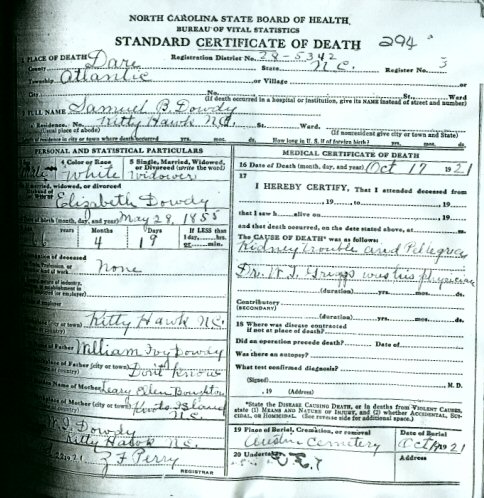 NORTH CAROLINA STATE BOARD OF HEALTH,
BUREAU OF VITAL STATISTICS
STANDARD CERTIFICATE OF DEATH 294
1 PLACE OF DEATH Registration District No. 28-5342 3
County Dare State N.C. Register No.
Township Atlantic or Village
City No. St. Ward
(If death occurred in a hospital or institution, give its NAME instead of street and number)
2 FULL NAME Samuel B. Dowdy
Residence. No. Kitty Hawk N.C. St. Ward.
(Usual place of abode) (If nonresident give city or town and State
of residence in city or town where death occurred yrs. mos. How long in U. S. if of foreign birth? yrs. mos. ds.
PERSONAL AND STATISTICAL PARTICULARS
4 Color or Race 5 Single, Married, Widowed, or Divorced (write the word)
White Widower
married, widowed, or divorced
Elizabeth Dowdy
of birth (month, day, and year) May 28, 1855
years Months Days If LESS than
6 4 19 1 day, hrs.
or min.
of deceased
None
kind of work
nature of industry,
establishment in
or employer)
(city or town) Kitty Hawk N.C.
of Father William Ivy Dowdy
of Father (city or town) Don't Know
Name of Mother Ellen
of Mother (city or town) Island
N.C.
Dowdy
Kitty Hawk N.C.
1921 Z F Perry
REGISTRAR
MEDICAL CERTIFICATE OF DEATH
16 Date of Death (month, day, and year) Oct 17 1921
17
I HEREBY CERTIFY, That I attended deceased from
, 19 , to , 19
that I saw h alive on , 19
and that death occurred, on the date stated above, at m.
The CAUSE OF DEATH* was as follows:
Kidney trouble and Pellegra
Dr. W. T. Griggs was his physician
(duration) yrs. mos. ds.
Contributory
(SECONDARY)
(duration) yrs. mos. ds.
18 Where was disease contracted
if not at place of death?
Did an operation precede death? Date of
Was there an autopsy?
What test confirmed diagnosis?
(Signed) M. D.
, 19 (Address)
*State the DISEASE CAUSING DEATH, or in deaths from VIOLENT CAUSES,
state (1) MEANS AND NATURE OF INJURY, and (2) whether ACCIDENTAL, SUI-
CIDAL, or HOMICIDAL. (See reverse side for additional space.)
19 Place of Burial, Cremation, or removal Date of Burial
Austin Cemetery Oct 1921
20 Undertaker Address